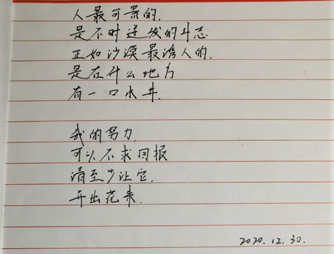 人最可贵的,
是不时迸发的斗志
正如沙漠最诱人的,
是在什么地方
有一口水井.
我的努力,
可以不求回报
请至少让它,
开出花来.
2020.12.30.